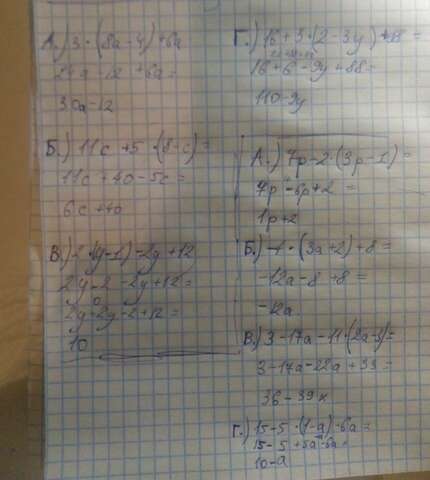 А.) 3 · (8a - 4) + 6a
24a - 12 + 6a =
30a - 12
Б.) 11c + 5 · (8 - c) =
11c + 40 - 5c =
6c + 40
В.) 2 · (y - 1) - 2y + 12
2y - 2 - 2y + 12 =
2y - 2y - 2 + 12 =
10
Г.) 16 + 3 · (2 - 3y) + 88 =
16 + 6 - 9y + 88 =
110 - 9y
А.) 7p - 2 · (3p - 1) =
7p - 6p + 2 =
1p + 2
Б.) -4 · (3a + 2) + 8 =
-12a - 8 + 8 =
-12a
В.) 3 - 17a - 11 · (2a - 3) =
3 - 17a - 22a + 33 =
36 - 39
Г.) 15 - 5 · (1 - a) - 6a =
15 - 5 + 5a - 6a =
10 - a